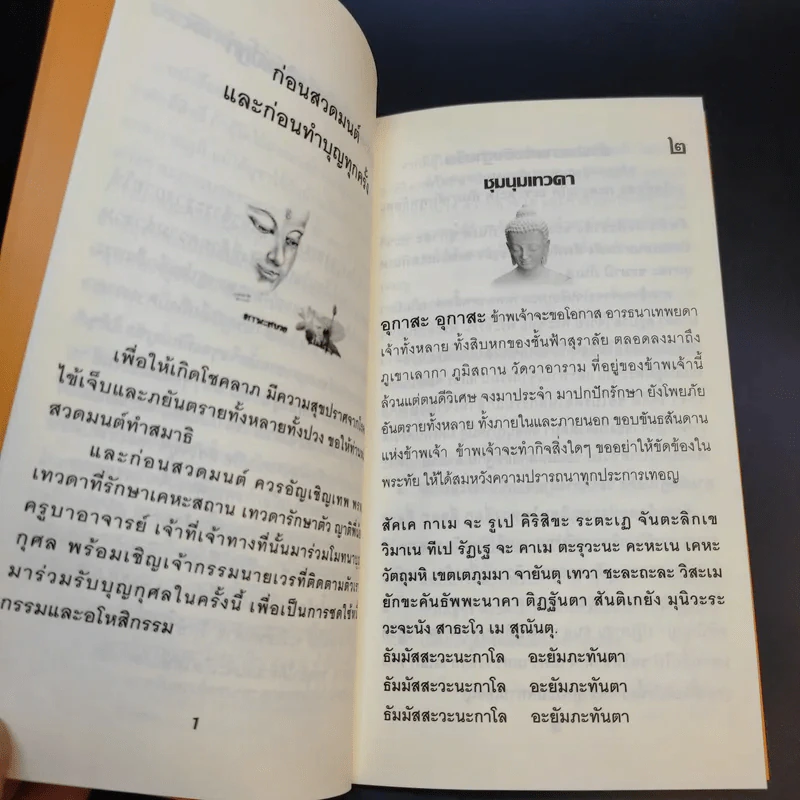 ก่อนสวดมนต์
และก่อนทำบุญทุกครั้ง
เพื่อให้เกิดโชคลาภ มีความสุขปราศจาก
ไข้เจ็บและภยันตรายทั้งหลายทั้งปวง ขอให้
สวดมนต์ทำสมาธิ
และก่อนสวดมนต์ ควรอัญเชิญเทพ
เทวดาที่รักษาเคหะสถาน เทวดารักษาตัว ญาติ
ครูบาอาจารย์ เจ้าที่เจ้าทางที่นั้นมาร่วมโมทนา
กุศล พร้อมเชิญเจ้ากรรมนายเวรที่ติดตามตัว
มาร่วมรับบุญกุศลในครั้งนี้ เพื่อเป็นการชดใช้
กรรมและอโหสิกรรม
1
๒
ชุมนุมเทวดา
อุกาสะ อุกาสะ ข้าพเจ้าจะขอโอกาส อารธนาเทพยดา
เจ้าทั้งหลาย ทั้งสิบหกของชั้นฟ้าสุราลัย ตลอดลงมาถึง
ภูเขาเลากา ภูมิสถาน วัดวาอาราม ที่อยู่ของข้าพเจ้านี้
ล้วนแต่ตนดีวิเศษ จงมาประจำ มาปกปักรักษา ยังโพยภัย
อันตรายทั้งหลาย ทั้งภายในและภายนอก ขอบขันธสันดาน
แห่งข้าพเจ้า ข้าพเจ้าจะทำกิจสิ่งใดๆ ขออย่าให้ขัดข้องใน
พระทัย ให้ได้สมหวังความปรารถนาทุกประการเทอญ
สัคเค กาเม จะ รูเป คิริสิขะ ระตะเฏ จันตะลิกเข
วิมาเน ทีเป รัฏเฐ จะ คาเม ตะรุวะนะ คะหะเน เคหะ
วัตถุมหิ เขตเตภุมมา จายันตุ เทวา ชะละถะละ วิสะเม
ยักขะคันธัพพะนาคา ติฏฐันตา สันติเกยัง มุนิวะระ
วะจะนัง สาธะโว เม สุณันตุ.
ธัมมัสสะวะนะกาโล อะยัมภะทันตา
ธัมมัสสะวะนะกาโล อะยัมภะทันตา
ธัมมัสสะวะนะกาโล อะยัมภะทันตา